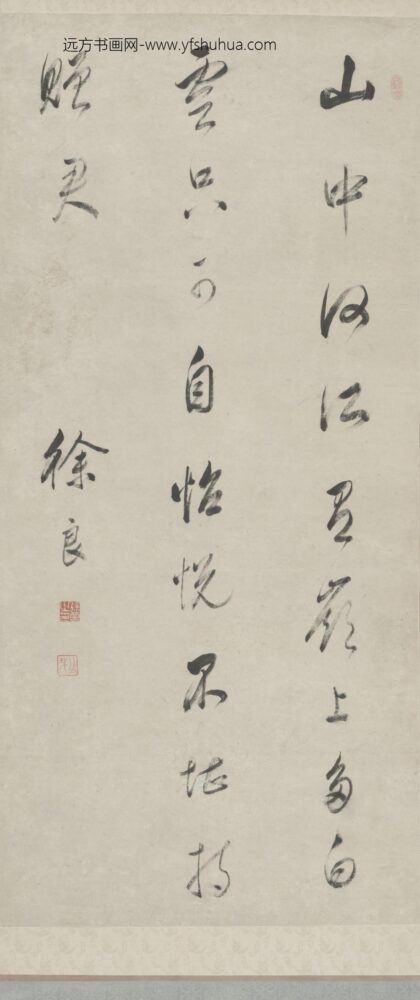 远方书画网-www.yfshuhua.com
山中何所有嶺上多白
雲只可自怡悅不堪持
贈君
徐良